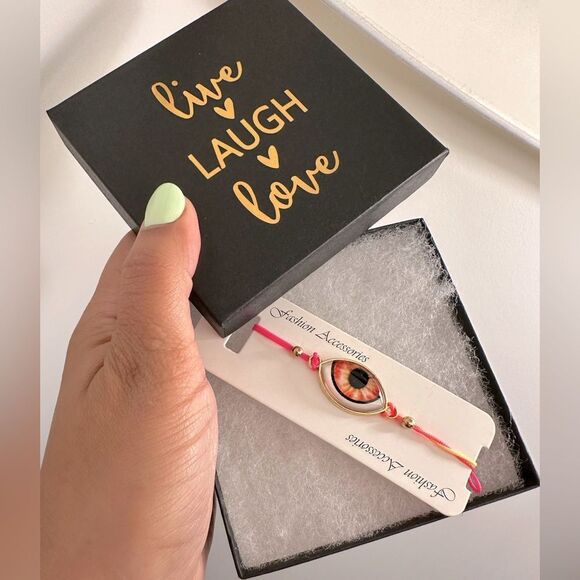 live
LAUGH
love
Fashion Accessories
Fashion Accessories